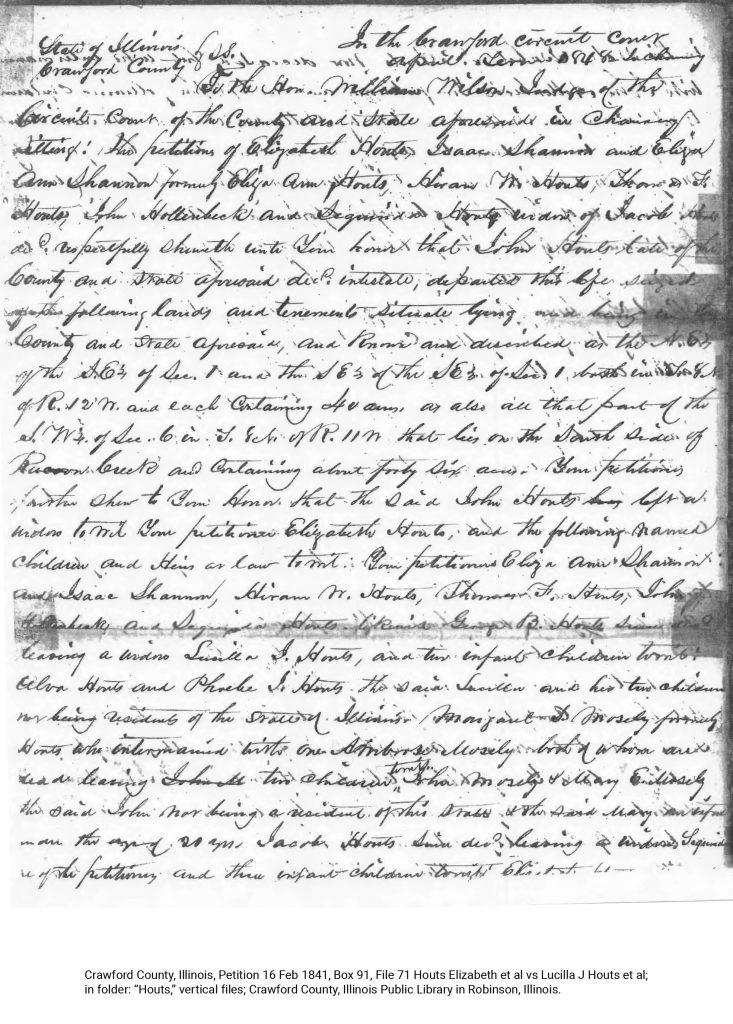 State of Illinois } SS. In the Crawford circuit court
Crawford County April Term 184 in chancery
To the Hon. William Wilson Judge of the
Circuit Court of the County and State aforesaid in Chancery
sitting: The petitions of Elizabeth Houts, Isaac Shannon and Eliza
Ann Shannon formerly Eliza Ann Houts, Hiram W. Houts, Thomas F.
Houts, John Hollenbeck and Houts widow of Jacob Houts
decd. respectfully sheweth unto Your honor that John Houts late of the
County and State aforesaid decd. intestate, departed this life seized
of the following lands and tenements situate lying and being in the
County and State aforesaid, and Known and described as the N.E¼
of the S.E¼ of Sec. 1 and the S E¼ of the S E¼ of Sec 1, both in T. 8 N.
of R. 12 W. and each Containing 40 acres, as also all that part of the
S. W¼ of Sec. 6 in T. 8 N. of R. 11 W that lies on the South side of
Racoon Creek and Containing about forty six acres. Your petitioners
further shew to Your Honor that the said John Houts left a
widow towit Your petitioner Elizabeth Houts, and the following named
children and Heirs at law towit: Your petitioners Eliza Ann Shannon
and Isaac Shannon, Hiram W. Houts, Thomas F. Houts, John
and Houts likewise George B. Houts since decd.
leaving a widow Lucilla J. Houts, and two infant children towit:
Alva Houts and Phoebe J. Houts the said Lucilla and her two children
not being residents of the State of Illinois Margaret Mosely formerly
Houts who intermarried with one Ambrose Mosely both of whom are
dead leaving two children towit John Mosely & Mary E Mosely
the said John not being a resident of this State & the said Mary an infant
under the age of 20 yrs. Jacob Houts since decd. leaving a widow
of the petitioners and three infant children towit
Crawford County, Illinois, Petition 16 Feb 1841, Box 91, File 71 Houts Elizabeth et al vs Lucilla J Houts et al;
in folder: “Houts,” vertical files; Crawford County, Illinois Public Library in Robinson, Illinois.